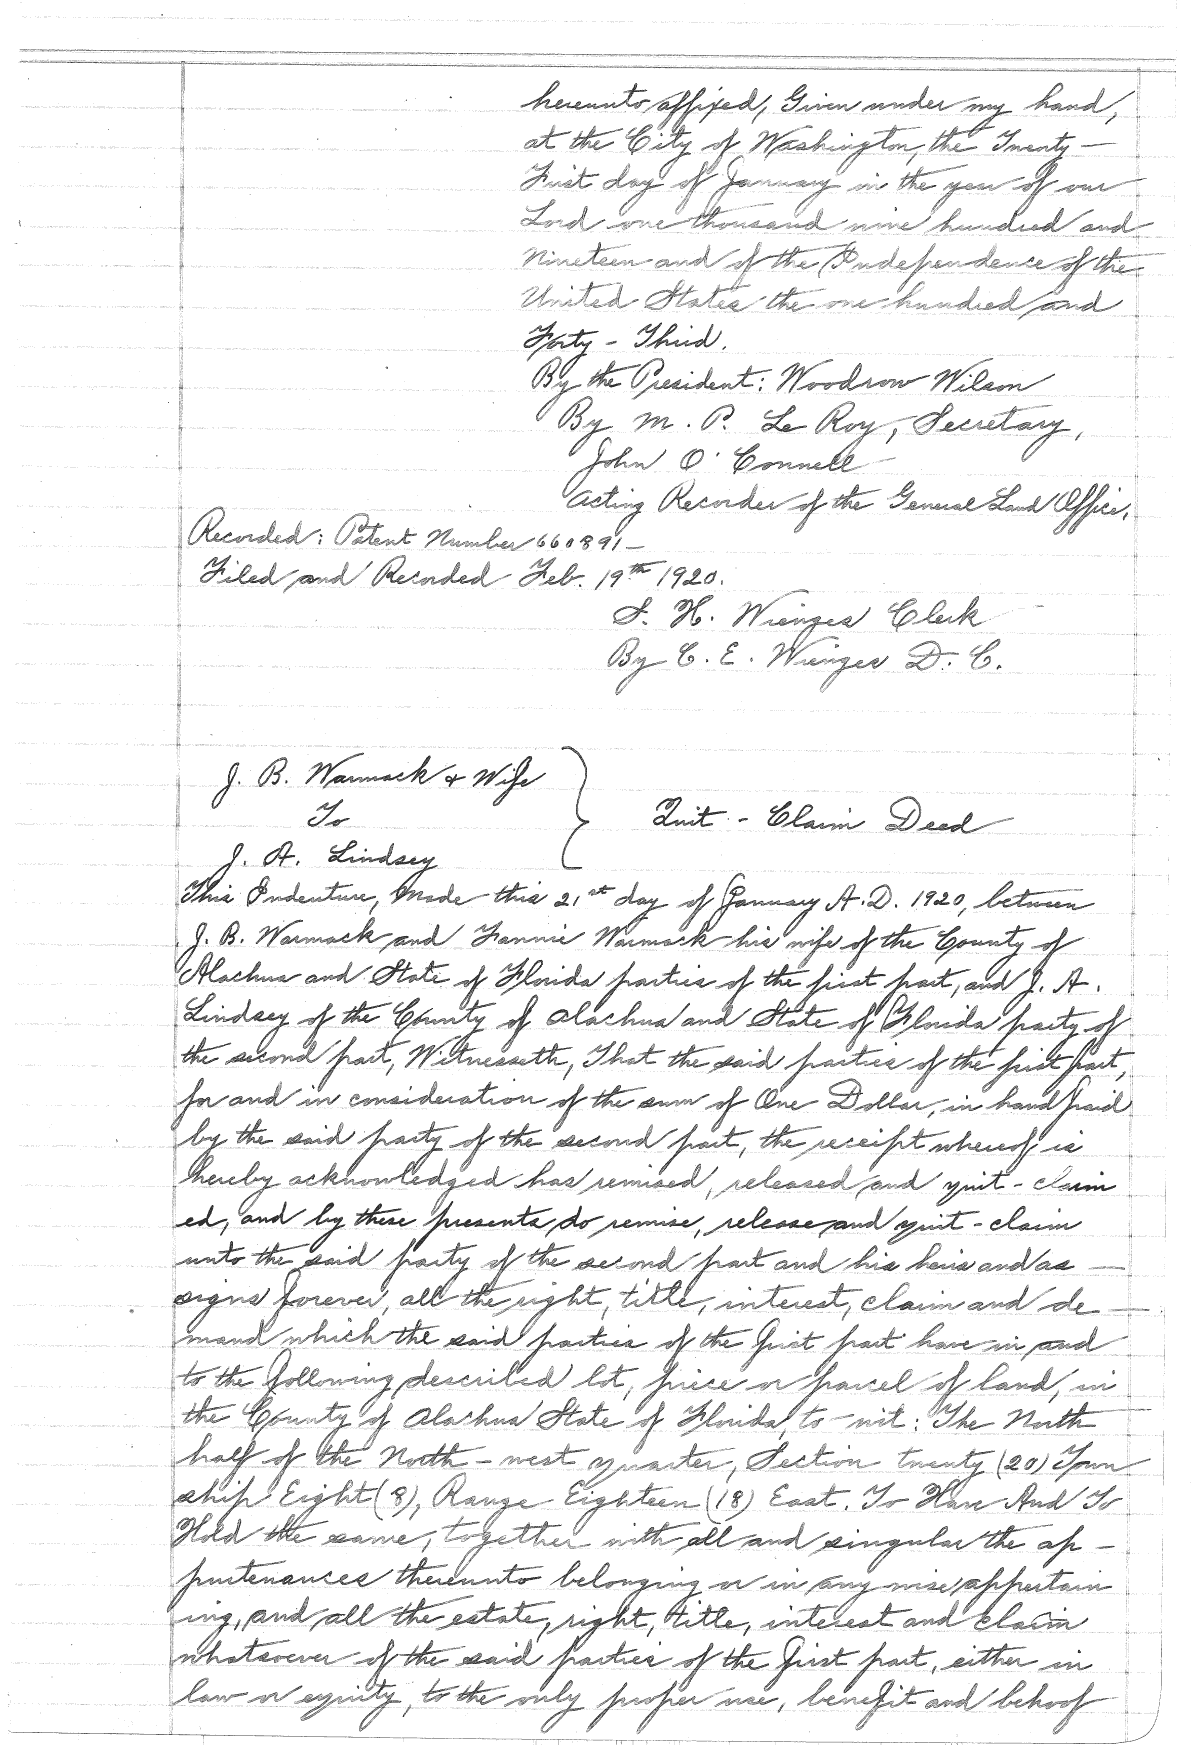 hereunto affixed, Given under my hand,
at the City of Washington, the Twenty —
First day of January in the year of our
Lord one thousand nine hundred and
Nineteen and of the Independence of the
United States the one hundred and
Forty - Third.
By the President: Woodrow Wilson
By M. P. Le Roy, Secretary,
John O'Connell
Acting Recorder of the General Land Office.
Recorded: Patent Number 660891 —
Filed and Recorded Feb. 19th 1920.
S. H. Wienges Clerk
By C. E. Wienges D. C.
J. B. Warmack & Wife
To
Quit - Claim Deed
J. A. Lindsey
This Indenture, Made this 21st day of January A.D. 1920, between
J. B. Warmack and Fannie Warmack his wife of the County of
Alachua and State of Florida parties of the first part, and J. A.
Lindsey of the County of Alachua and State of Florida party of
the second part, Witnesseth, That the said parties of the first part,
for and in consideration of the sum of One Dollar, in hand paid
by the said party of the second part, the receipt whereof is
hereby acknowledged has remised, released and quit - claim
ed, and by these presents do remise, release and quit - claim
unto the said party of the second part and his heirs and as —
signs forever, all the right, title, interest, claim and de —
mand which the said parties of the first part have in and
to the following described lot, piece or parcel of land, in
the County of Alachua State of Florida, to - wit: The North
half of the North - west quarter, Section twenty (20) Town
ship Eight (8), Range Eighteen (18) East. To Have And To
Hold the same, together with all and singular the ap -
purtenances thereunto belonging or in any wise appertain
ing, and all the estate, right, title, interest and claim
whatsoever of the said parties of the first part, either in
law or equity, to the only proper use, benefit and behoof